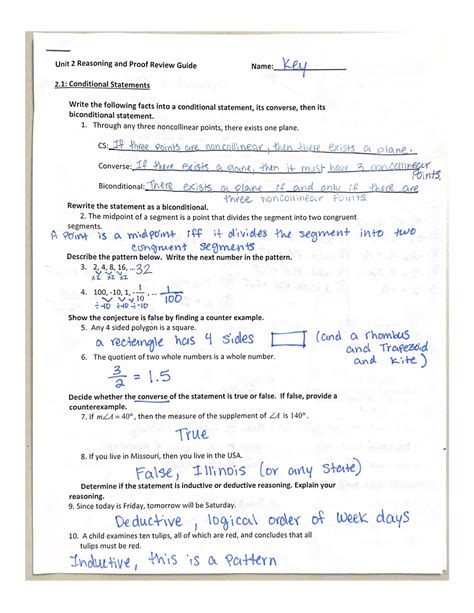 Unit 2 Reasoning and Proof Review Guide Name: Key
2.1: Conditional Statements
Write the following facts into a conditional statement, its converse, then its
biconditional statement.
1. Through any three noncollinear points, there exists one plane.
CS: If three points are noncollinear, then there exists a plane.
Converse: If there exists a plane, then it must have 3 noncollinear
points.
Biconditional: There exists a plane if and only if there are
three noncollinear points.
Rewrite the statement as a biconditional.
2. The midpoint of a segment is a point that divides the segment into two congruent
segments.
A point is a midpoint iff it divides the segment into two
congruent segments
Describe the pattern below. Write the next number in the pattern.
3. 2, 4, 8, 16, 32
x2 x2 x2
4. 100, -10, 1, -1/10, ... 1/100
÷-10 ÷-10 ÷-10
Show the conjecture is false by finding a counter example.
5. Any 4 sided polygon is a square.
a rectangle has 4 sides (and a rhombus
and Trapezoid
and kite)
6. The quotient of two whole numbers is a whole number.
3/2 = 1.5
Decide whether the converse of the statement is true or false. If false, provide a
counterexample.
7. If m∠A = 40°, then the measure of the supplement of ∠A is 140°.
True
8. If you live in Missouri, then you live in the USA.
False, Illinois (or any state)
Determine if the statement is inductive or deductive reasoning. Explain your
reasoning.
9. Since today is Friday, tomorrow will be Saturday.
Deductive, logical order of week days
10. A child examines ten tulips, all of which are red, and concludes that all
tulips must be red.
Inductive, this is a pattern